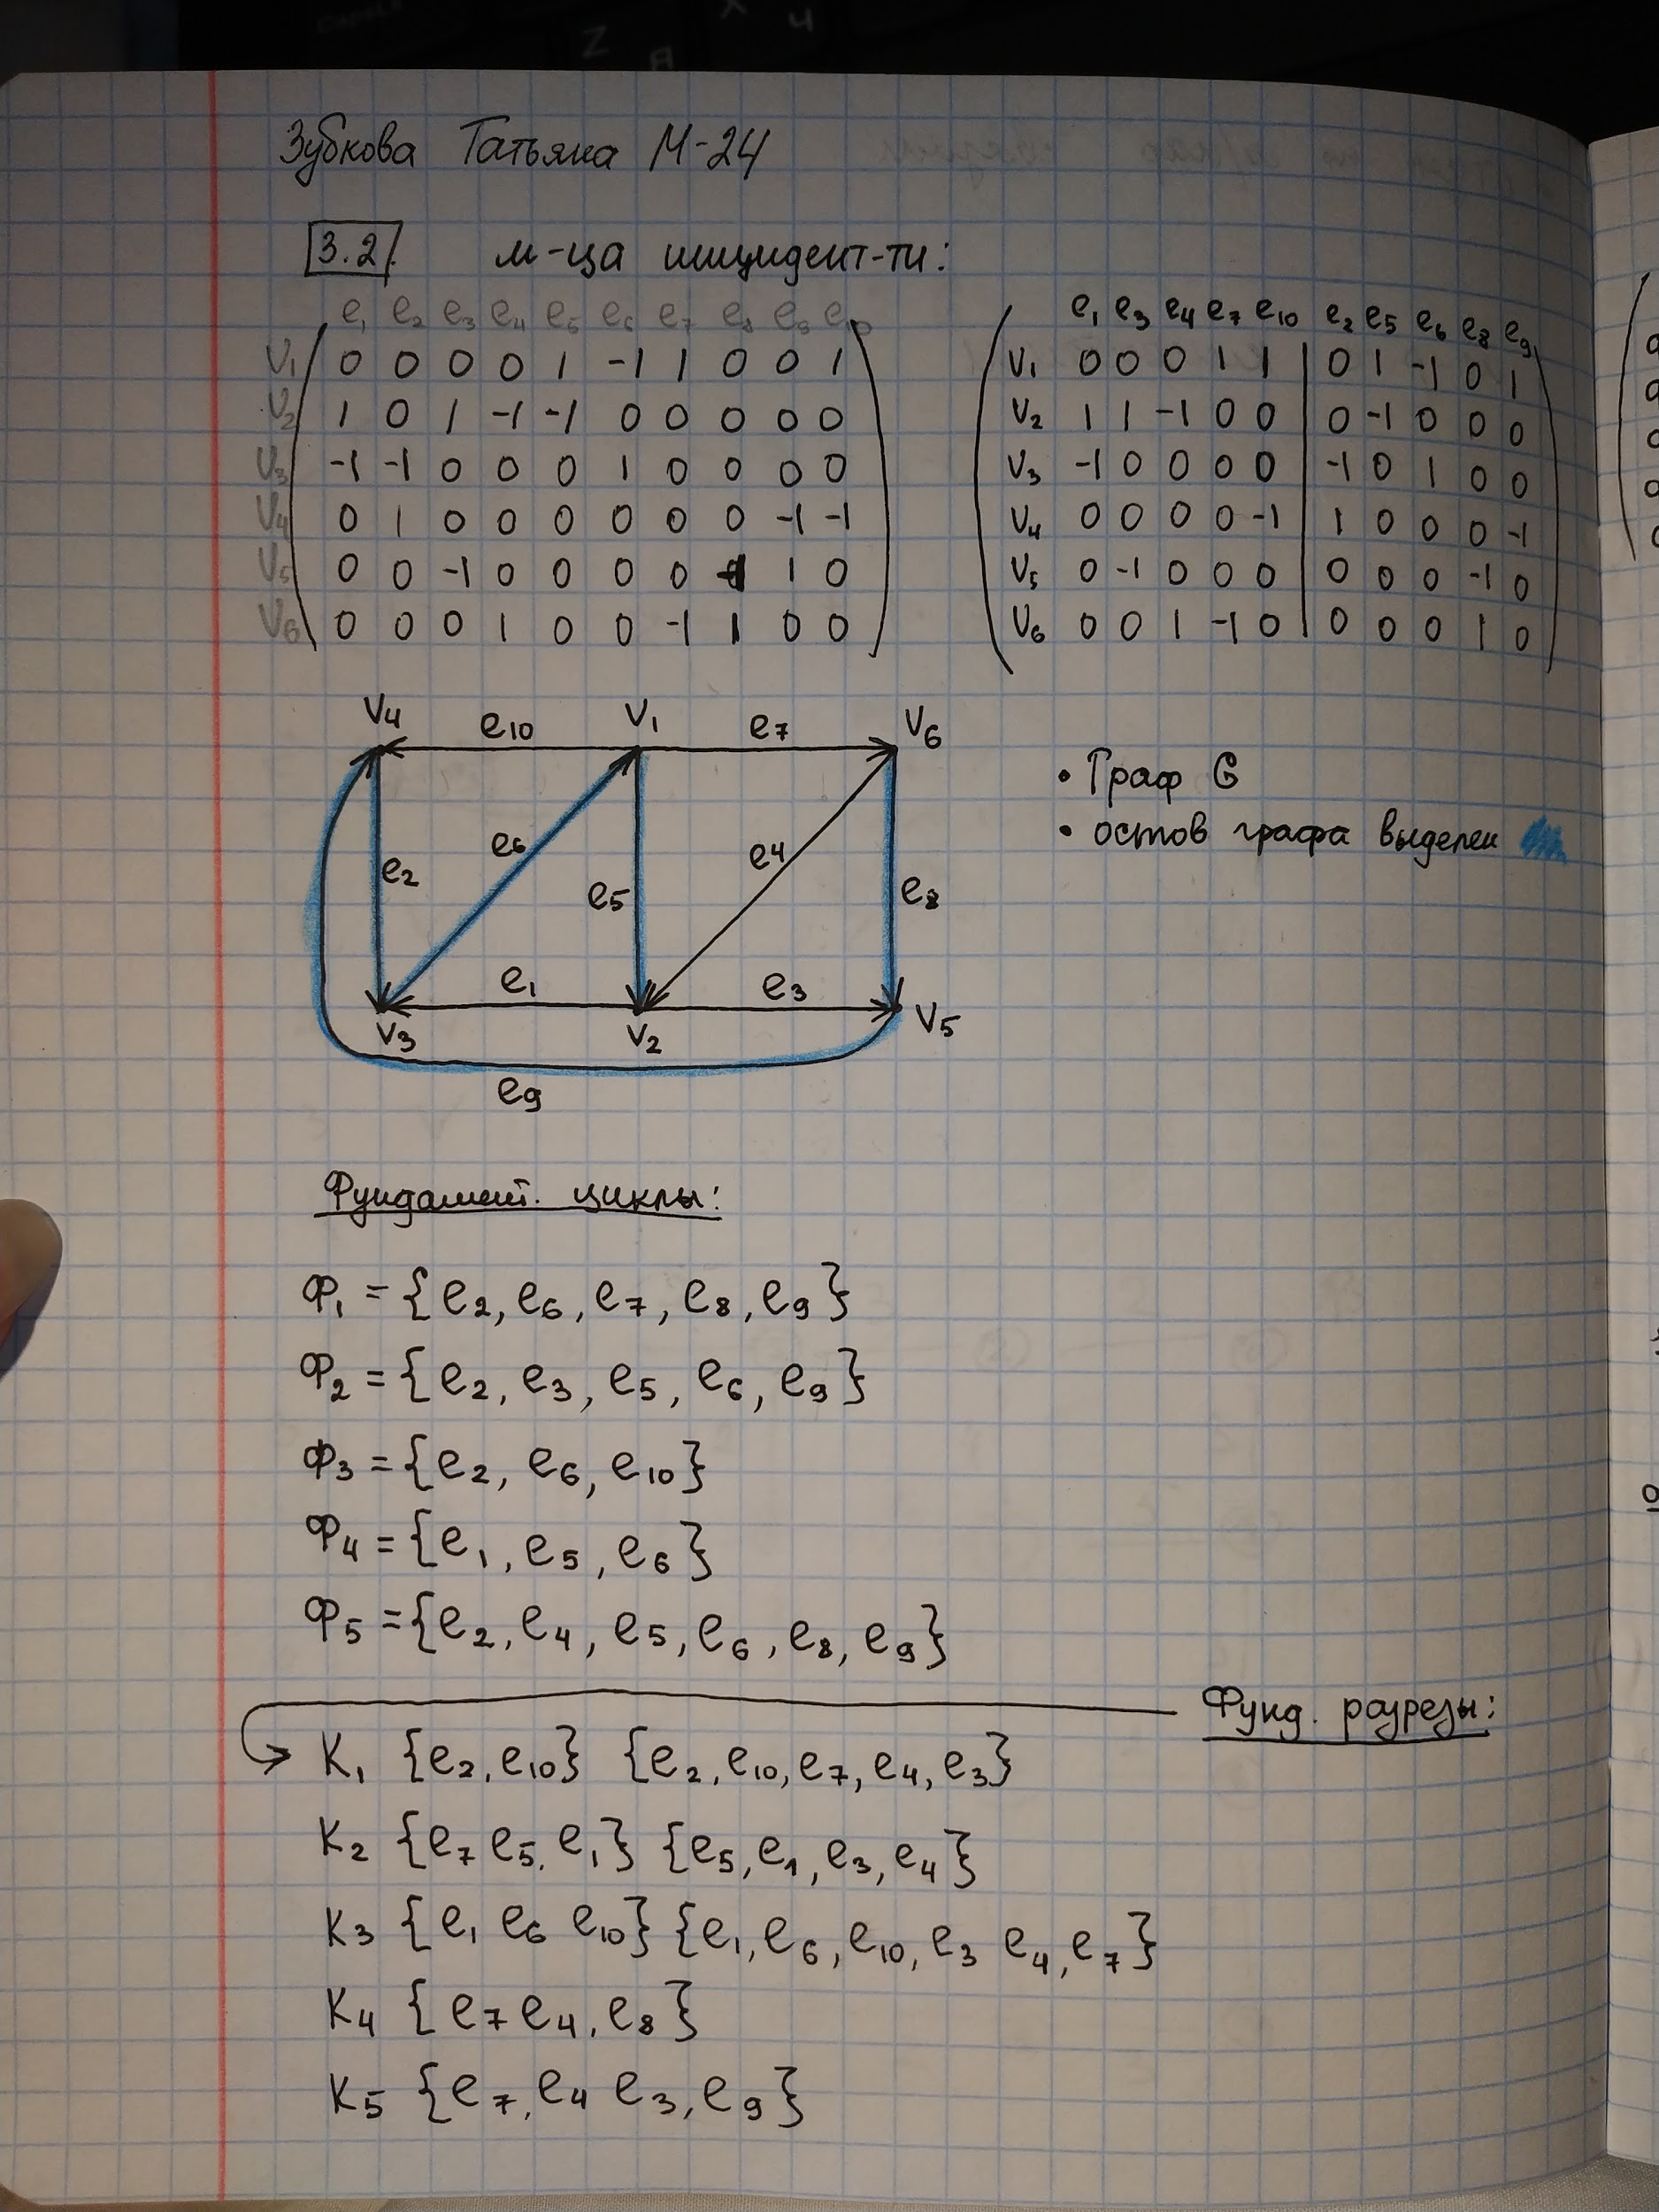 Зубкова Татьяна М-24
3.2. м-ца инцидент-ти:
e₁ e₂ e₃ e₄ e₅ e₆ e₇ e₈ e₉ e₁₀
V₁ 0 0 0 0 1 -1 1 0 0 1
V₂ 1 0 1 -1 -1 0 0 0 0 0
V₃ -1 -1 0 0 0 1 0 0 0 0
V₄ 0 1 0 0 0 0 0 0 -1 -1
V₅ 0 0 -1 0 0 0 0 -1 1 0
V₆ 0 0 0 1 0 0 -1 1 0 0
e₁ e₃ e₄ e₇ e₁₀ e₂ e₅ e₆ e₈ e₉
V₁ 0 0 0 1 1 | 0 1 -1 0 1
V₂ 1 1 -1 0 0 | 0 -1 0 0 0
V₃ -1 0 0 0 0 | -1 0 1 0 0
V₄ 0 0 0 0 -1 | 1 0 0 0 -1
V₅ 0 -1 0 0 0 | 0 0 0 -1 0
V₆ 0 0 1 -1 0 | 0 0 0 1 0
V₄ e₁₀ V₁ e₇ V₆
e₂ e₆ e₅ e₄ e₈
e₁ e₃
V₃ V₂ V₅
e₉
• Граф G
• остов графа выделен
Фундамент. циклы:
Ф₁ = {e₂, e₆, e₇, e₈, e₉}
Ф₂ = {e₂, e₃, e₅, e₆, e₉}
Ф₃ = {e₂, e₆, e₁₀}
Ф₄ = {e₁, e₅, e₆}
Ф₅ = {e₂, e₄, e₅, e₆, e₈, e₉}
Фунд. разрезы:
K₁ {e₂, e₁₀} {e₂, e₁₀, e₇, e₄, e₃}
K₂ {e₇ e₅, e₁} {e₅, e₁, e₃, e₄}
K₃ {e₁ e₆ e₁₀} {e₁, e₆, e₁₀, e₃ e₄, e₇}
K₄ {e₇ e₄, e₈}
K₅ {e₇, e₄ e₃, e₉}